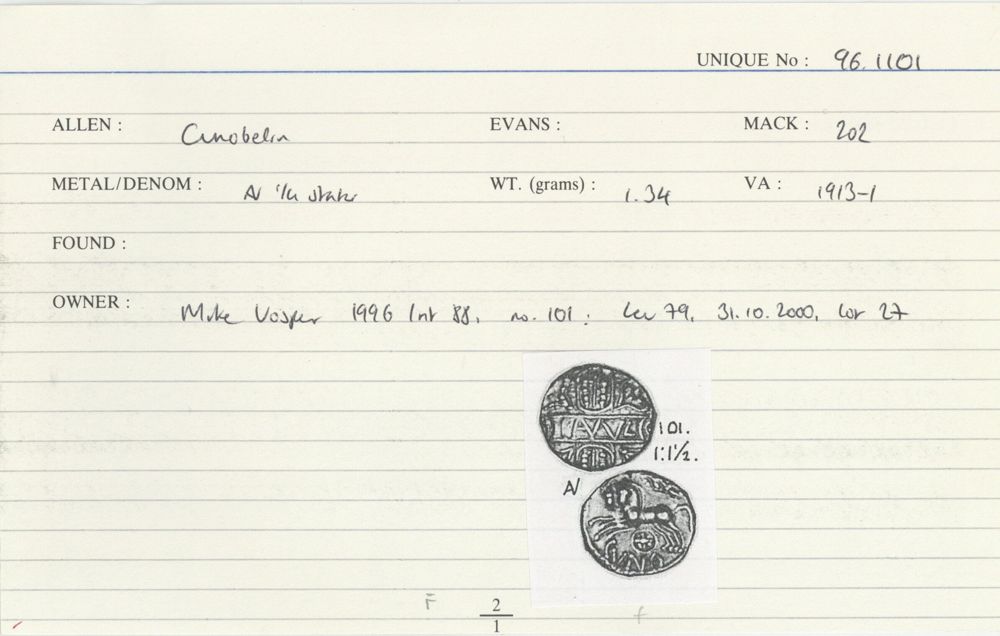 UNIQUE No : 96.1101
ALLEN : Cunobelin EVANS : MACK : 202
METAL/DENOM : AV 1/4 stater WT. (grams) : 1.34 VA : 1913-1
FOUND :
OWNER : Mike Vosper 1996 Int 88, no. 101 : Lev 79, 31.10.2000, lot 27
101.
1:1½.
AV
CUNO
F 2 f
1